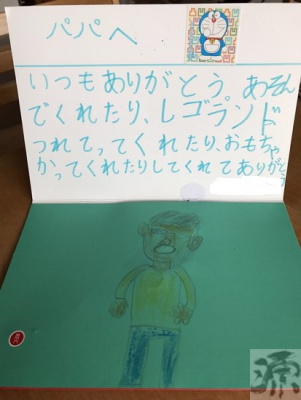 パパへ
いつもありがとう。あそん
でくれたり、レゴランド
つれてってくれたり、おもちゃ
かってくれたりしてくれてありがとう
源